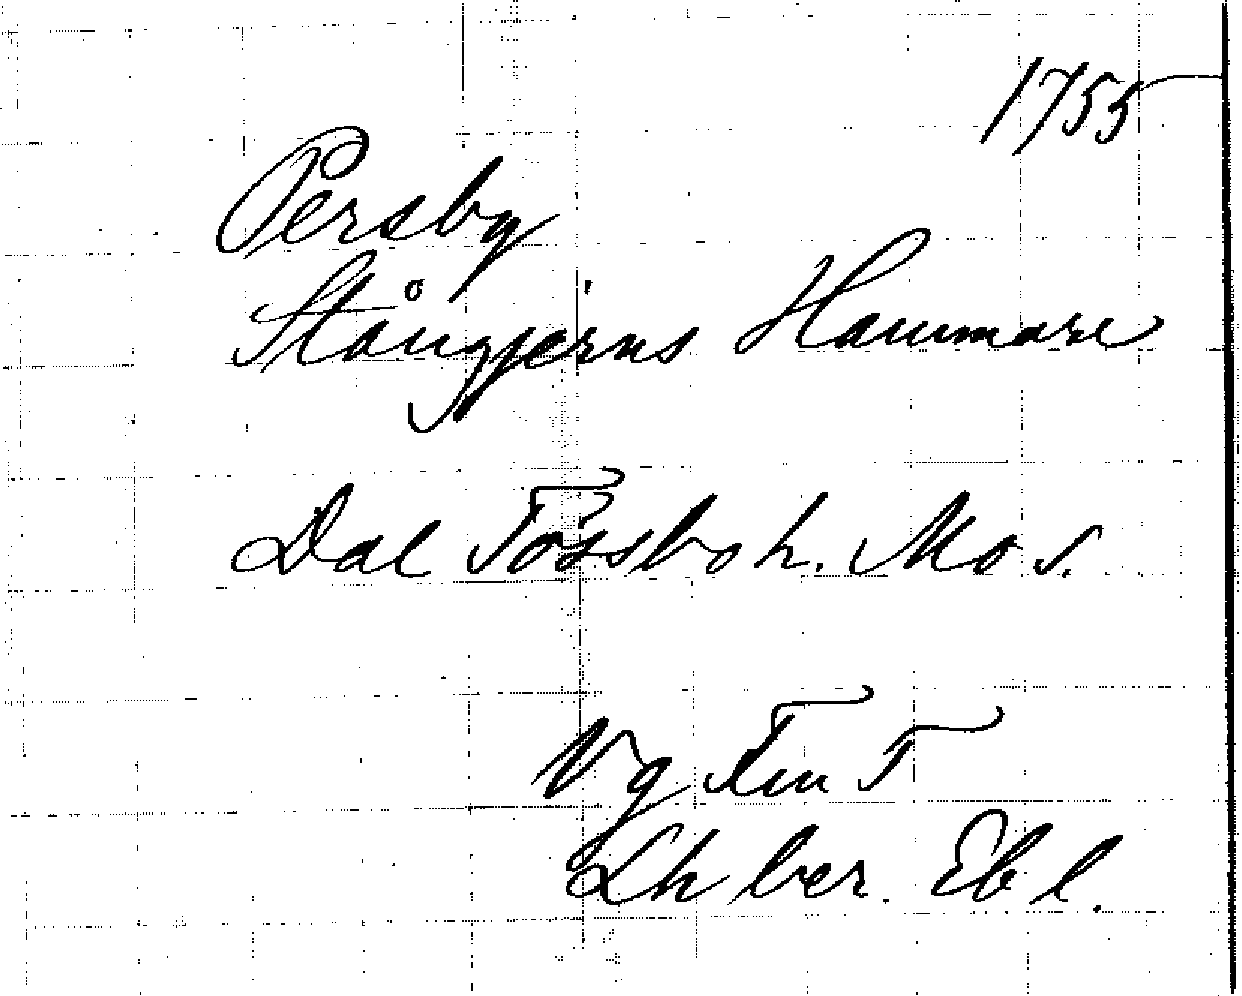 1755
Persby
Stångjerns Hammare
Dal Tössbo h. Mo s.
Vg
Lh ber. Ebl.